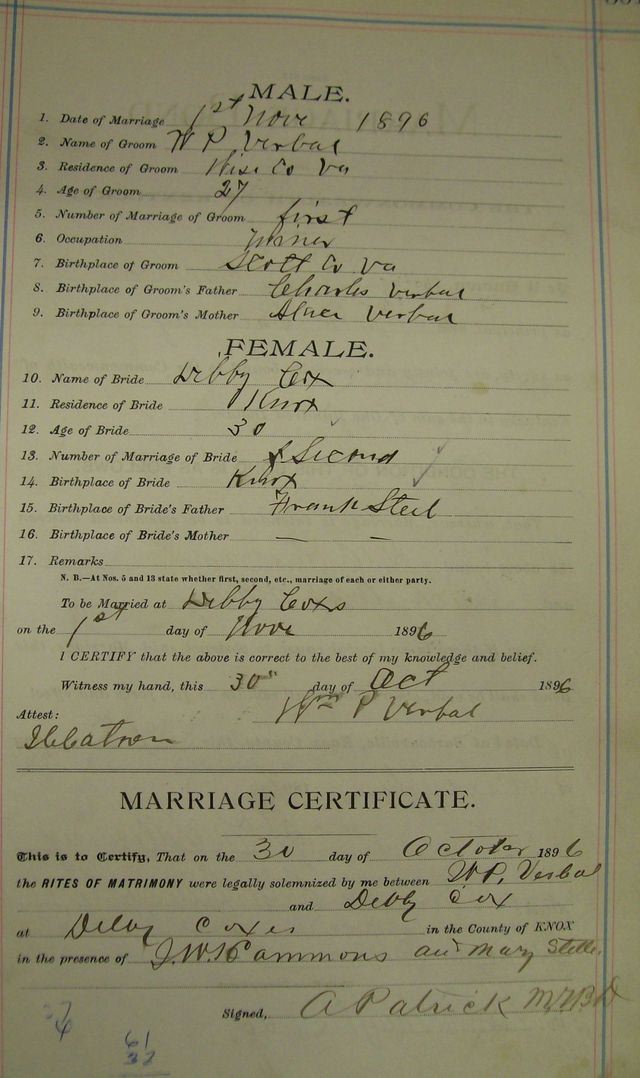 MALE.
1. Date of Marriage 1st Nov 1896
2. Name of Groom W P Verbal
3. Residence of Groom Wise Co Va
4. Age of Groom 27
5. Number of Marriage of Groom first
6. Occupation Miner
7. Birthplace of Groom Scott Co Va
8. Birthplace of Groom's Father Charles Verbal
9. Birthplace of Groom's Mother Verbal
FEMALE.
10. Name of Bride Debby Cox
11. Residence of Bride Knox
12. Age of Bride 30
13. Number of Marriage of Bride Second
14. Birthplace of Bride Knox
15. Birthplace of Bride's Father Frank Steel
16. Birthplace of Bride's Mother — —
17. Remarks
N. B.—At Nos. 5 and 13 state whether first, second, etc., marriage of each or either party.
To be Married at Debby Coxs
on the 1st day of Nov 1896
I CERTIFY that the above is correct to the best of my knowledge and belief.
Witness my hand, this 30" day of Oct 1896
Wm P Verbal
Attest:
MARRIAGE CERTIFICATE.
This is to Certify, That on the 30 day of October 1896
the RITES OF MATRIMONY were legally solemnized by me between W P. Verbal
and Debby Cox
at Debby Coxes in the County of KNOX
in the presence of J. W. Hammons and Mary Steele.
Signed, A Patrick
61
32